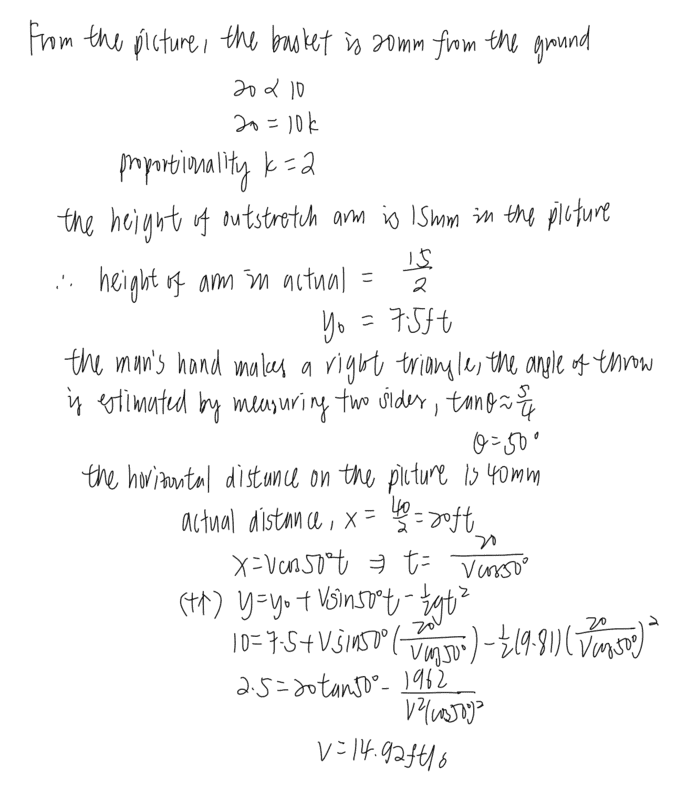 From the picture, the basket is 20mm from the ground
20 ∝ 10
20 = 10k
proportionality k = 2
the height of outstretch arm is 15mm in the picture
∴ height of arm in actual = 15/2
y₀ = 7.5ft
the man's hand makes a right triangle, the angle of throw
is estimated by measuring two sides, tanθ ≈ 5/4
θ = 50°
the horizontal distance on the picture is 40mm
actual distance, x = 40/2 = 20ft
x = Vcos50°t ⇒ t = 20/Vcos50°
(+↑) y = y₀ + Vsin50°t - ½gt²
10 = 7.5 + Vsin50°(20/Vcos50°) - ½(9.81)(20/Vcos50°)²
2.5 = 20tan50° - 1962/V²(cos50°)²
V = 14.92ft/s